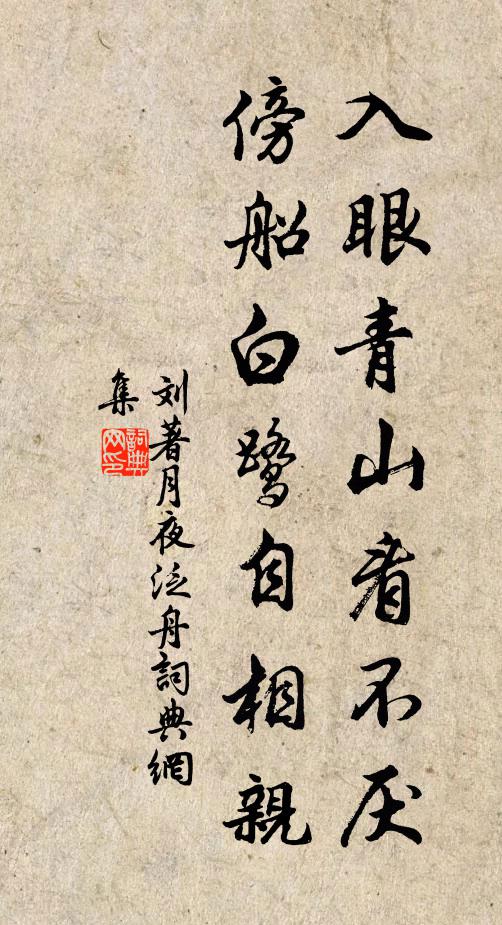 入眼青山看不厌
傍船白鹭自相親
刘著月夜泛舟詞典網
集
詞典
网印